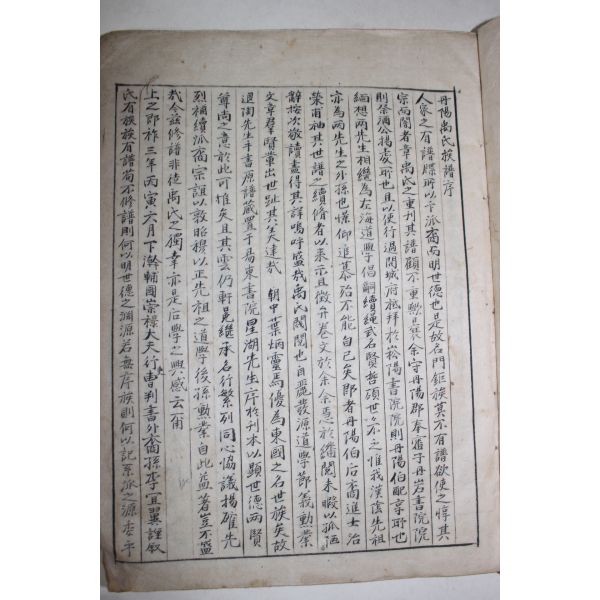 丹陽禹氏族譜序
人家之有譜牒所以字派裔而明世德也是故名門鉅族莫不有譜欲使之惇其
宗而聞者韋禹氏之重刊其譜顧不重歟是余守丹陽郡奉審于丹岩書院院
則祭酒公揚處所也且以使行過開城府祗拜於崧陽書院院則丹陽伯配享所也
緬想兩先生相繼為左海道學倡嗣續繩武名賢哲碩世不乏惟我漢陰先祖
亦為兩先生之外孫也慬仰追慕殆不能自已矣郎者丹陽伯后裔進士治
榮甫袖其世譜之續脩者以來示且徵弁卷文於余余惠於繙閱未暇以孤陋
辭按次敬讀盡得其詳嗚呼盛哉禹氏閥閱也自麗發源道學節義勳業
文章羣賢輩出世趾其美大達哉 朝中葉炳靈焉優為東國之名世族矣故
退陶先生手書原譜藏置于易東書院星湖先生序於刊本以顯世德兩賢
尊尚之意於此可推矣且其雲仍軒冕繼承名行繁列同心協議揚確先
烈補續派裔宗誼以敦昭穆以正先祖之道學後孫勲業自此益著豈不盛
哉今玆修譜非徒禹氏之獨幸亦是后學之興感云爾
上之卽祚三年丙寅六月下澣輔國崇祿大夫行曹判書外裔孫李宜翼謹叙
氏有族族有譜苟不修譜則何以明世德之淵源若無序族則何以記系派之源委乎